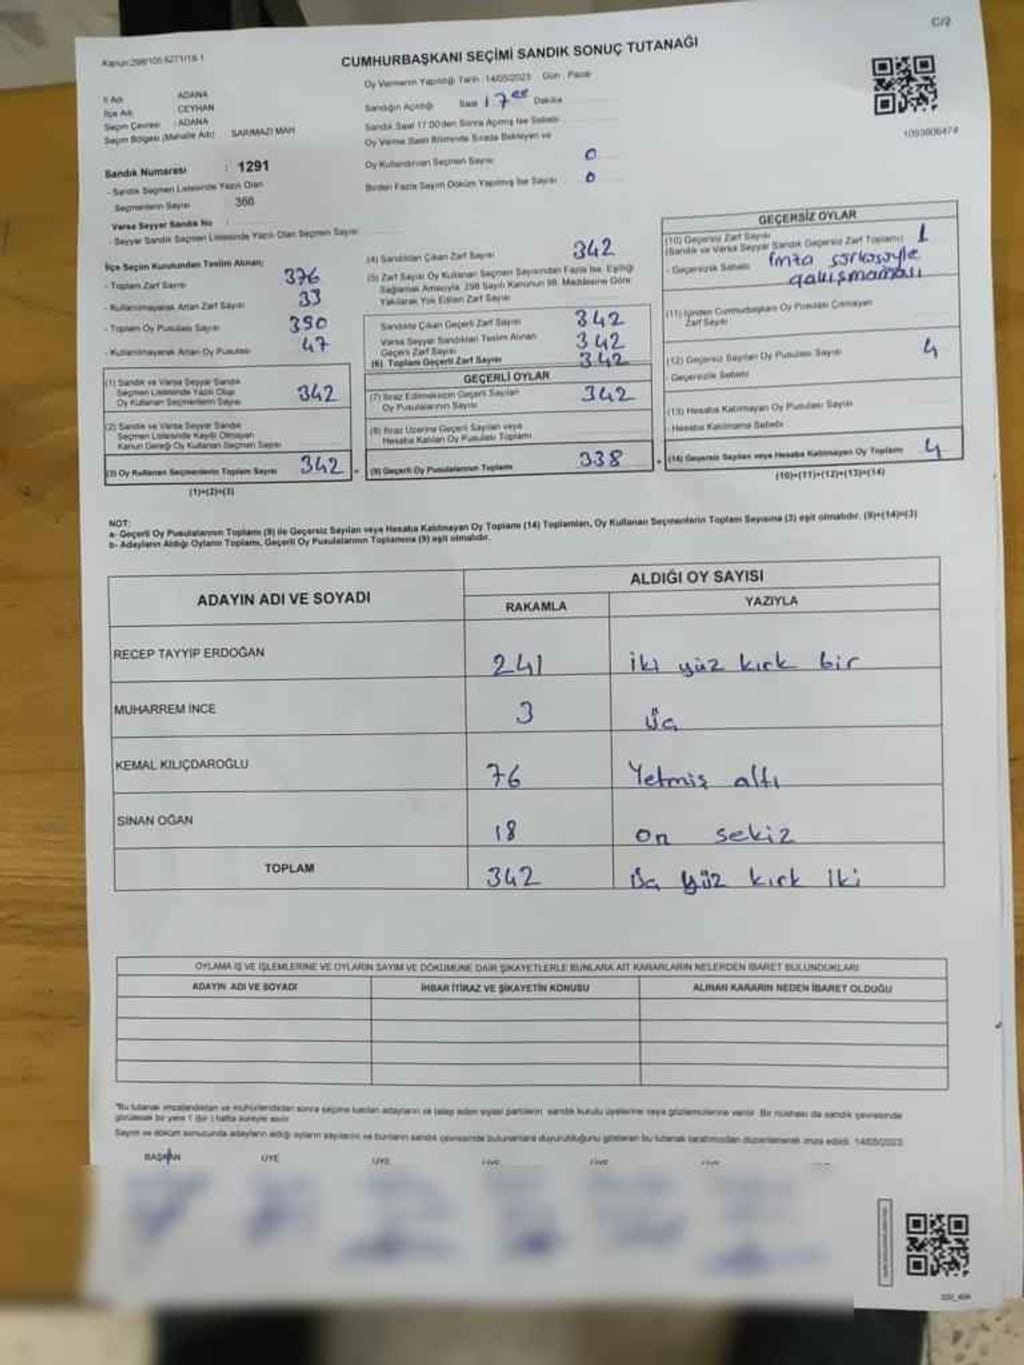 C/2
Kanun:298/105 6271/18-1
CUMHURBAŞKANI SEÇİMİ SANDIK SONUÇ TUTANAĞI
Oy Vermenin Yapıldığı Tarih : 14/05/2023 Gün : Pazar
İl Adı : ADANA
İlçe Adı : CEYHAN
Seçim Çevresi : ADANA
Seçim Bölgesi (Mahalle Adı) : SARIMAZI MAH.
Sandığın Açıldığı Saat 17 00 Dakika
Sandık Saat 17:00'den Sonra Açılmış İse Sebebi
Oy Verme Saati Bitiminde Sırada Bekleyen ve
Oy Kullandırılan Seçmen Sayısı 0
Birden Fazla Sayım Döküm Yapılmış İse Sayısı 0
1093606474
Sandık Numarası : 1291
- Sandık Seçmen Listesinde Yazılı Olan
Seçmenlerin Sayısı 366
Varsa Seyyar Sandık No :
- Seyyar Sandık Seçmen Listesinde Yazılı Olan Seçmen Sayısı
İlçe Seçim Kurulundan Teslim Alınan;
- Toplam Zarf Sayısı 376
- Kullanılmayarak Artan Zarf Sayısı 33
- Toplam Oy Pusulası Sayısı 390
- Kullanılmayarak Artan Oy Pusulası 47
(1) Sandık ve Varsa Seyyar Sandık
Seçmen Listesinde Yazılı Olup
Oy Kullanan Seçmenlerin Sayısı 342
(2) Sandık ve Varsa Seyyar Sandık
Seçmen Listesinde Kayıtlı Olmayan
Kanun Gereği Oy Kullanan Seçmen Sayısı
(3) Oy Kullanan Seçmenlerin Toplam Sayısı 342
(1)+(2)=(3)
(4) Sandıktan Çıkan Zarf Sayısı 342
(5) Zarf Sayısı Oy Kullanan Seçmen Sayısından Fazla İse, Eşitliği
Sağlamak Amacıyla, 298 Sayılı Kanunun 98. Maddesine Göre
Yakılarak Yok Edilen Zarf Sayısı
Sandıkta Çıkan Geçerli Zarf Sayısı 342
Varsa Seyyar Sandıktan Teslim Alınan
Geçerli Zarf Sayısı 342
(6) Toplam Geçerli Zarf Sayısı 342
GEÇERLİ OYLAR
(7) İtiraz Edilmeksizin Geçerli Sayılan
Oy Pusulalarının Sayısı 342
(8) İtiraz Üzerine Geçerli Sayılan veya
Hesaba Katılan Oy Pusulası Toplamı
(9) Geçerli Oy Pusulalarının Toplamı 338
GEÇERSİZ OYLAR
(10) Geçersiz Zarf Sayısı
(Sandık ve Varsa Seyyar Sandık Geçersiz Zarf Toplamı) 1
- Geçersizlik Sebebi imza sirküsüyle
çakışmaması
(11) İçinden Cumhurbaşkanı Oy Pusulası Çıkmayan
Zarf Sayısı
(12) Geçersiz Sayılan Oy Pusulası Sayısı 4
- Geçersizlik Sebebi
(13) Hesaba Katılmayan Oy Pusulası Sayısı
- Hesaba Katılmama Sebebi
(14) Geçersiz Sayılan veya Hesaba Katılmayan Oy Toplamı 4
(10)+(11)+(12)+(13)=(14)
NOT:
a- Geçerli Oy Pusulalarının Toplamı (9) ile Geçersiz Sayılan veya Hesaba Katılmayan Oy Toplamı (14) Toplamları, Oy Kullanan Seçmenlerin Toplam Sayısına (3) eşit olmalıdır. (9)+(14)=(3)
b- Adayların Aldığı Oyların Toplamı, Geçerli Oy Pusulalarının Toplamına (9) eşit olmalıdır.
ADAYIN ADI VE SOYADI
ALDIĞI OY SAYISI
RAKAMLA YAZIYLA
RECEP TAYYİP ERDOĞAN 241 iki yüz kırk bir
MUHARREM İNCE 3 üç
KEMAL KILIÇDAROĞLU 76 Yetmiş altı
SİNAN OĞAN 18 on sekiz
TOPLAM 342 üç yüz kırk iki
OYLAMA İŞ VE İŞLEMLERİNE VE OYLARIN SAYIM VE DÖKÜMÜNE DAİR ŞİKAYETLERLE BUNLARA AİT KARARLARIN NELERDEN İBARET BULUNDUKLARI
ADAYIN ADI VE SOYADI İHBAR İTİRAZ VE ŞİKAYETİN KONUSU ALINAN KARARIN NEDEN İBARET OLDUĞU
*Bu tutanak imzalandıktan ve mühürlendikten sonra seçime katılan adayların ve talep eden siyasi partilerin sandık kurulu üyelerine veya gözlemcilerine verilir. Bir nüshası da sandık çevresinde
görülecek bir yere 1 (bir) hafta süreyle asılır.
Sayım ve döküm sonucunda adayların aldığı oyların sayılarını ve bunların sandık çevresinde bulunanlara duyurulduğunu gösteren bu tutanak tarafımızdan düzenlenerek imza edildi. 14/05/2023
BAŞKAN ÜYE ÜYE ÜYE ÜYE ÜYE